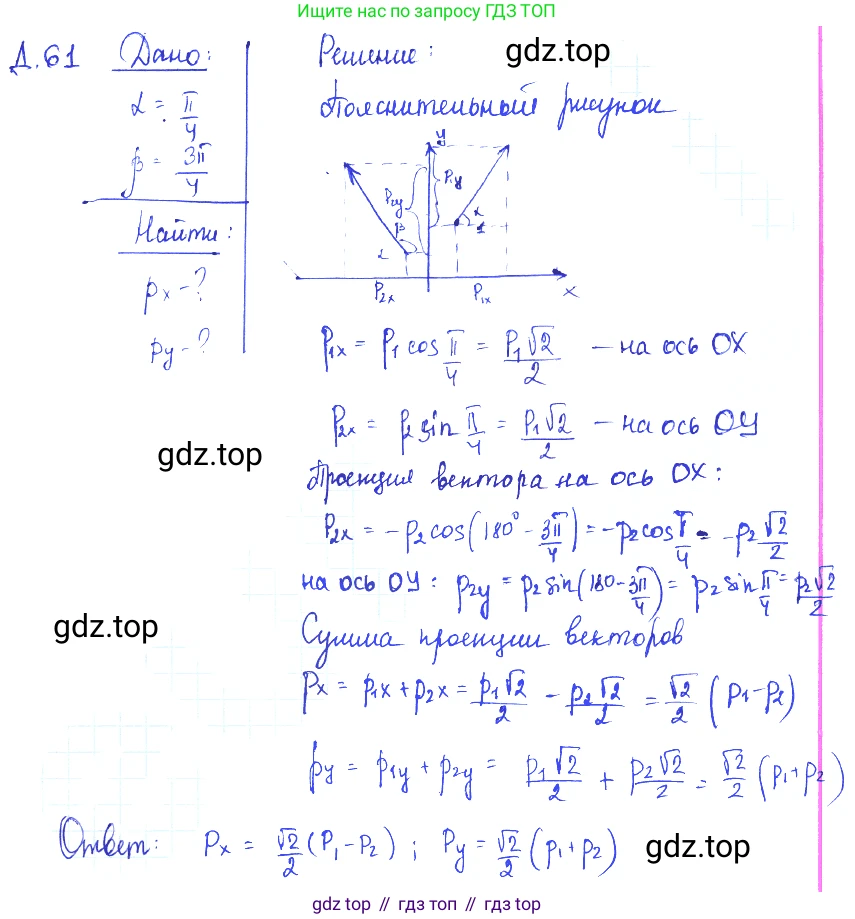 Ищите нас по запросу ГДЗ ТОП
Д.61 Дано: Решение: gdz.top
α = π/4
β = 3π/4
Найти:
px - ?
py - ?
Пояснительный рисунок
y
P1y
P2y
β
α
α
P2x P1x x
P1x = P1 cos π/4 = P1√2/2 — на ось OX
P2x = p2 sin π/4 = P1√2/2 — на ось ОУ
gdz.top
Проекция вектора на ось OX:
P2x = -p2 cos(180° - 3π/4) = -p2 cos π/4 = -p2 √2/2
на ось ОУ: p2y = p2 sin(180 - 3π/4) = p2 sin π/4 = p2√2/2
gdz.top
Сумма проекции векторов
Px = p1x + p2x = p1√2/2 - p2√2/2 = √2/2 (p1 - p2)
py = p1y + p2y = p1√2/2 + p2√2/2 = √2/2 (p1 + p2)
Ответ: Px = √2/2 (P1 - P2); Py = √2/2 (p1 + p2) gdz.top
gdz top // гдз топ // gdz top